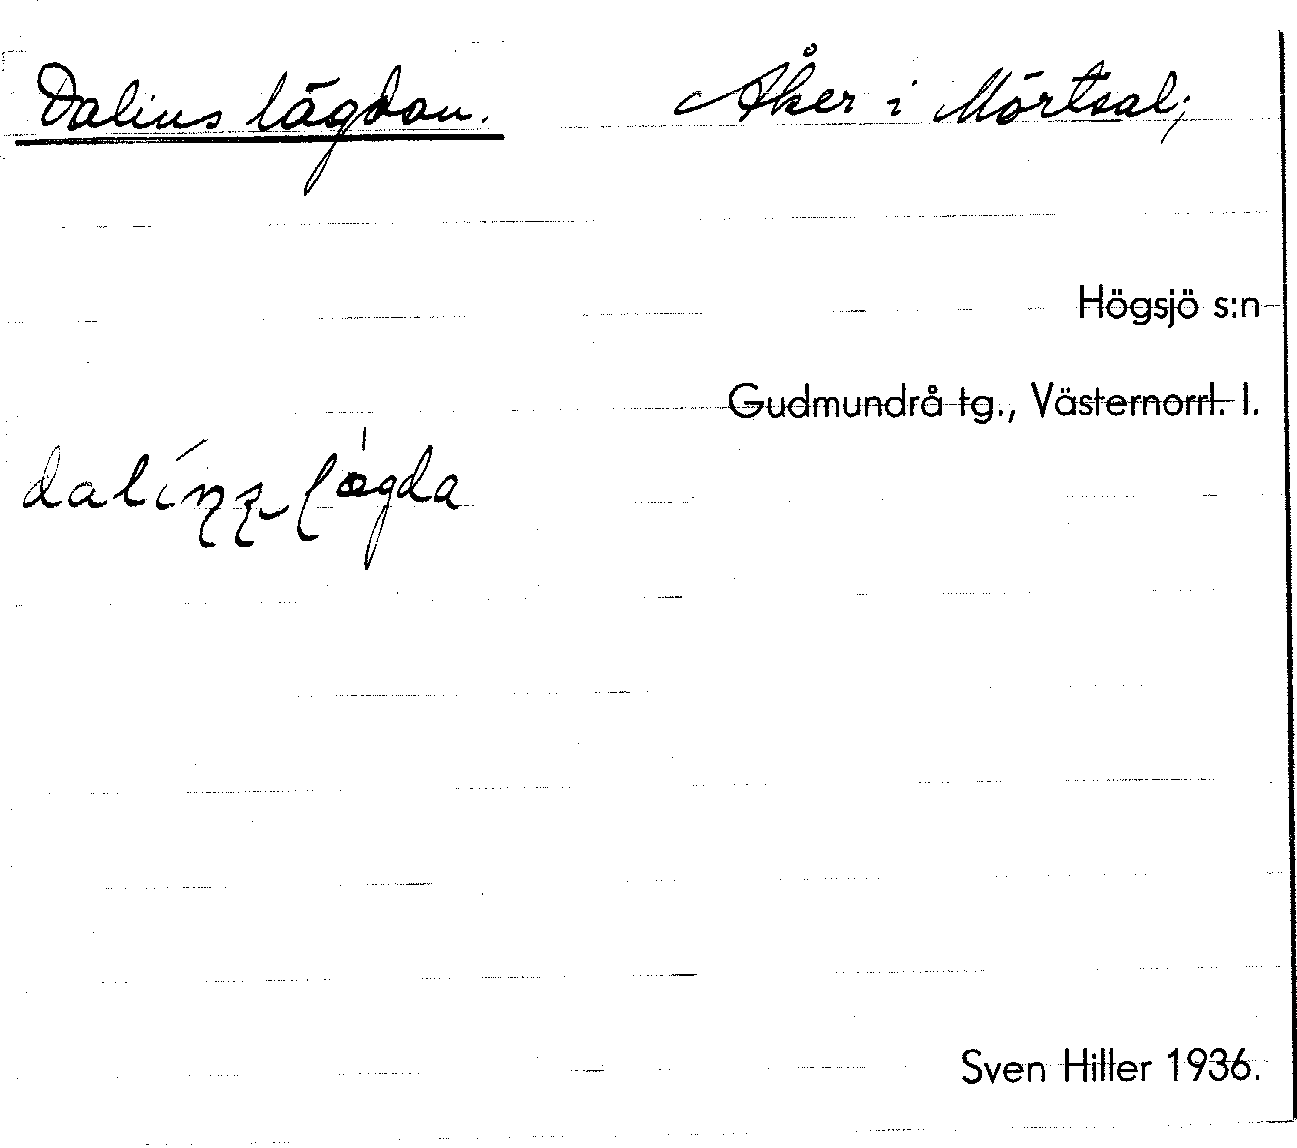 Dalins lägdan. Åker i Mörtsal;
Högsjö s:n
Gudmundrå tg., Västernorrl. l.
Sven Hiller 1936.